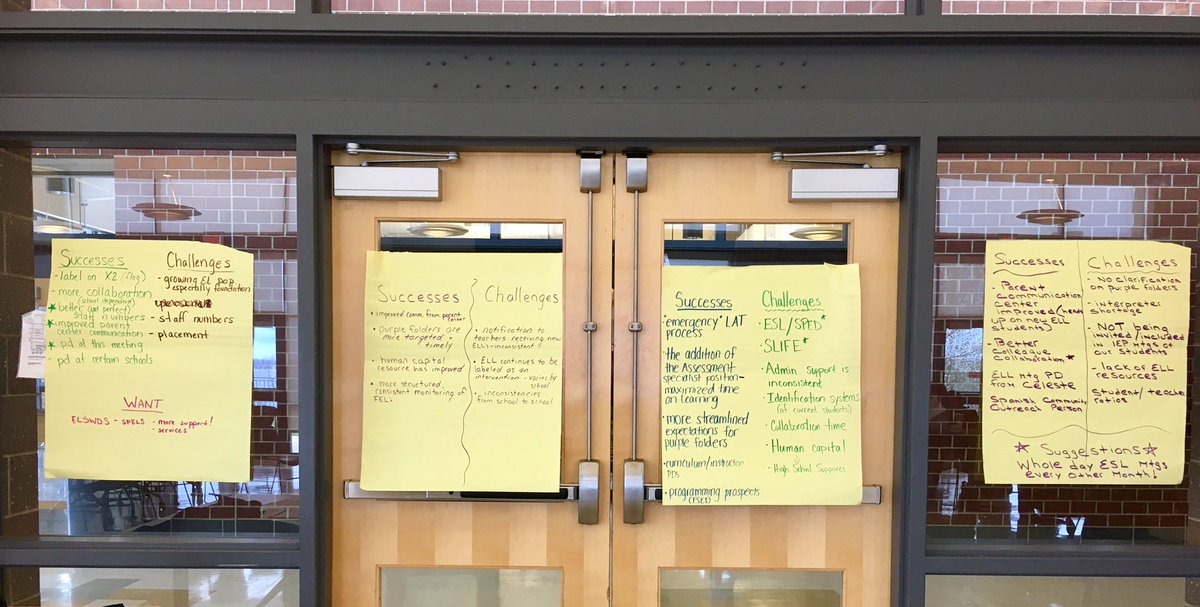 Successes
- label on X2 (flag)
- more collaboration
(school dependent)
★ better (not perfect)
staff numbers
★ improved parent
center communication
★ pd at this meeting
- pd at certain schools
Challenges
- growing EL pop
especially foundation
- staff numbers
- placement
WANT
ELSWDS - SPELS - more support!
services
Successes
• improved comm. from parent
center
• purple folders are
more targeted + timely
• human capital
resource has improved
• more structured,
consistent monitoring of
FELs
Challenges
• notification to
teachers receiving new
ELLs - inconsistent
• ELL continues to be
labeled as an
intervention - varies by
school
• inconsistencies
from school to school
Successes
• "emergency" LAT
process
• the addition of
the Assessment
specialist position -
maximized time
on learning
• more streamlined
expectations for
purple folders
• curriculum/instruction
PDs
• programming prospects
(FSE1)
Challenges
• ESL/SPED ★
• SLIFE ★
• Admin support is
inconsistent
• Identification systems
(of current students)
• Collaboration time
• Human capital
• High School Supports
Successes
- Parent
communication
center
improved (heads
up on new ELL
students)
- Better
Colleague
Collaboration ★
ELL mtg PD
from Celeste
Spanish Community
Outreach Person
Challenges
- No Clarification
on purple folders
- interpreter
shortage
- NOT being
invited/included
in IEP mtgs of
our students
- lack of ELL
resources
- Student/teacher
ratios
★ Suggestions ★
Whole day ESL Mtgs
Every Other Month!